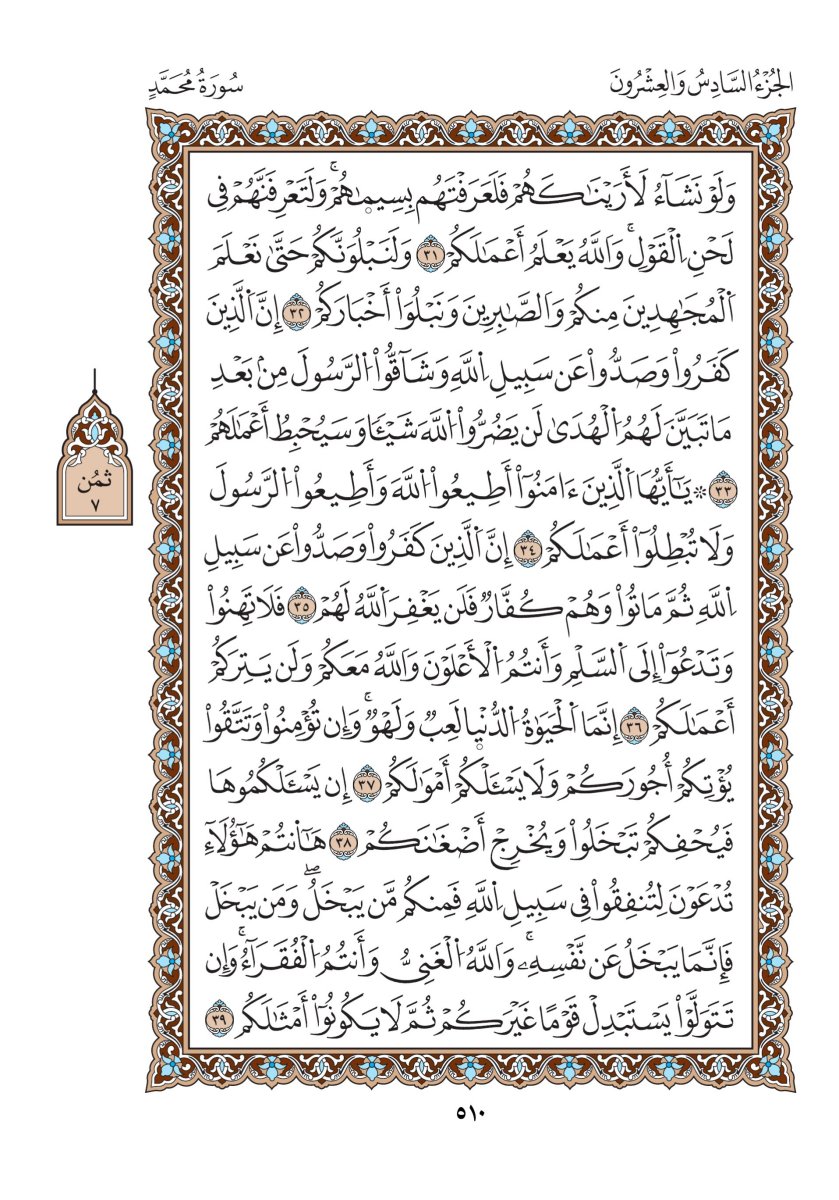 الجُزْءُ السَّادِسُ وَالعِشْرُونَ
سُورَةُ مُحَمَّدٍ
وَلَوْ نَشَآءُ لَأَرَيْنَٰكَهُمْ فَلَعَرَفْتَهُم بِسِيمٰ۪هُمْۚ وَلَتَعْرِفَنَّهُمْ فِى
لَحْنِ اِ۬لْقَوْلِۚ وَاللَّهُ يَعْلَمُ أَعْمَٰلَكُمْ ٣١ وَلَنَبْلُوَنَّكُمْ حَتَّىٰ نَعْلَمَ
اَ۬لْمُجَٰهِدِينَ مِنكُمْ وَالصَّٰبِرِينَ وَنَبْلُوَا۟ أَخْبَارَكُمْ ٣٢ إِنَّ اَ۬لَّذِينَ
كَفَرُوا۟ وَصَدُّوا۟ عَن سَبِيلِ اِ۬للَّهِ وَشَآقُّوا۟ اُ۬لرَّسُولَ مِنۢ بَعْدِ
مَا تَبَيَّنَ لَهُمُ اُ۬لْهُدَىٰ لَن يَضُرُّوا۟ اُ۬للَّهَ شَيْـًٔا وَسَيُحْبِطُ أَعْمَٰلَهُمْ
٣٣ ۞ يَٰٓأَيُّهَا اَ۬لَّذِينَ ءَامَنُوٓا۟ أَطِيعُوا۟ اُ۬للَّهَ وَأَطِيعُوا۟ اُ۬لرَّسُولَ
وَلَا تُبْطِلُوٓا۟ أَعْمَٰلَكُمْ ٣٤ إِنَّ اَ۬لَّذِينَ كَفَرُوا۟ وَصَدُّوا۟ عَن سَبِيلِ
اِ۬للَّهِ ثُمَّ مَاتُوا۟ وَهُمْ كُفَّارٌ فَلَن يَغْفِرَ اَ۬للَّهُ لَهُمْ ٣٥ فَلَا تَهِنُوا۟
وَتَدْعُوٓا۟ إِلَى اَ۬لسَّلْمِ وَأَنتُمُ اُ۬لْأَعْلَوْنَ وَاللَّهُ مَعَكُمْ وَلَن يَتِرَكُمْ
أَعْمَٰلَكُمْ ٣٦ إِنَّمَا اَ۬لْحَيَوٰةُ اُ۬لدُّنْي۪ا لَعِبٌ وَلَهْوٌۚ وَإِن تُؤْمِنُوا۟ وَتَتَّقُوا۟
يُؤْتِكُمْ أُجُورَكُمْ وَلَا يَسْـَٔلْكُمْ أَمْوَٰلَكُمْ ٣٧ إِن يَسْـَٔلْكُمُوهَا
فَيُحْفِكُمْ تَبْخَلُوا۟ وَيُخْرِجْ أَضْغَٰنَكُمْ ٣٨ هَآنتُمْ هَٰٓؤُلَآءِ
تُدْعَوْنَ لِتُنفِقُوا۟ فِى سَبِيلِ اِ۬للَّهِ فَمِنكُم مَّن يَبْخَلُۖ وَمَن يَبْخَلْ
فَإِنَّمَا يَبْخَلُ عَن نَّفْسِهِۦۚ وَاللَّهُ اُ۬لْغَنِىُّ وَأَنتُمُ اُ۬لْفُقَرَآءُۚ وَإِن
تَتَوَلَّوْا۟ يَسْتَبْدِلْ قَوْمًا غَيْرَكُمْ ثُمَّ لَا يَكُونُوٓا۟ أَمْثَٰلَكُمْ ٣٩
ثُمُن
٧
٥١٠